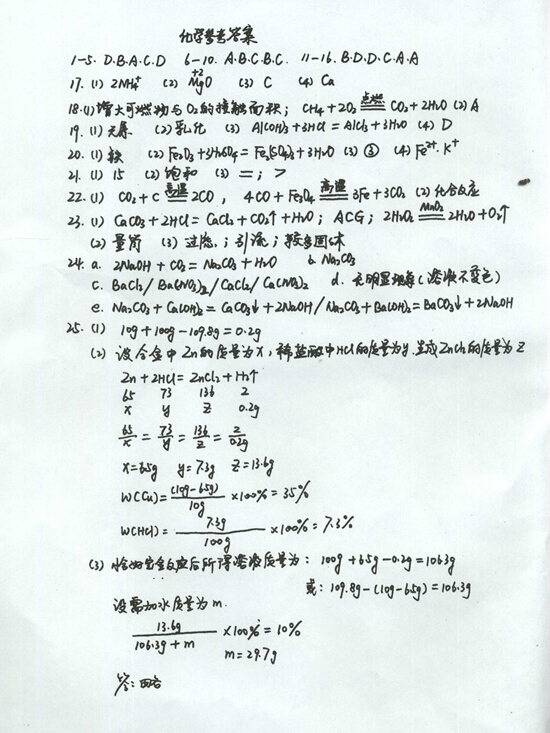 化学参考答案
1-5. D.B.A.C.D 6-10. A.B.C.B.C. 11-16. B.D.D.C.A.A
17. (1) 2NH₄⁺ (2) M⁺²gO (3) C (4) Ca
18.(1)增大可燃物与O₂的接触面积; CH₄+2O₂ 点燃 CO₂+2H₂O (2) A
19. (1) 无磷 (2) 乳化 (3) Al(OH)₃+3HCl=AlCl₃+3H₂O (4) D
20. (1) 铁 (2) Fe₂O₃+3H₂SO₄=Fe₂(SO₄)₃+3H₂O (3) ③ (4) Fe²⁺. K⁺
21. (1) 15 (2) 饱和 (3) =; >
22. (1) CO₂+C 高温 2CO, 4CO+Fe₃O₄ 高温 3Fe+3CO₂ (2) 化合反应
23. (1) CaCO₃+2HCl=CaCl₂+CO₂↑+H₂O; ACG; 2H₂O₂ MnO₂ 2H₂O+O₂↑
(2) 量筒 (3) 过滤; 引流; 固体
24. a. 2NaOH+CO₂=Na₂CO₃+H₂O b. Na₂CO₃
c. BaCl₂/Ba(NO₃)₂/CaCl₂/Ca(NO₃)₂ d. 无明显现象(溶液不变色)
e. Na₂CO₃+Ca(OH)₂=CaCO₃↓+2NaOH/Na₂CO₃+Ba(OH)₂=BaCO₃↓+2NaOH
25. (1) 10g+100g-109.8g=0.2g
(2) 设合金中Zn的质量为x,稀盐酸中HCl的质量为y.生成ZnCl₂的质量为z
Zn+2HCl=ZnCl₂+H₂↑
65 73 136 2
x y z 0.2g
65/x=73/y=136/z=2/0.2g
x=6.5g y=7.3g z=13.6g
W(Cu)=(10g-6.5g)/10g×100%=35%
W(HCl)=7.3g/100g×100%=7.3%
(3) 恰好完全反应后所得溶液质量为: 100g+6.5g-0.2g=106.3g
或: 109.8g-(10g-6.5g)=106.3g
设需加水质量为m.
13.6g/(106.3g+m)×100%=10%
m=29.7g
答:略